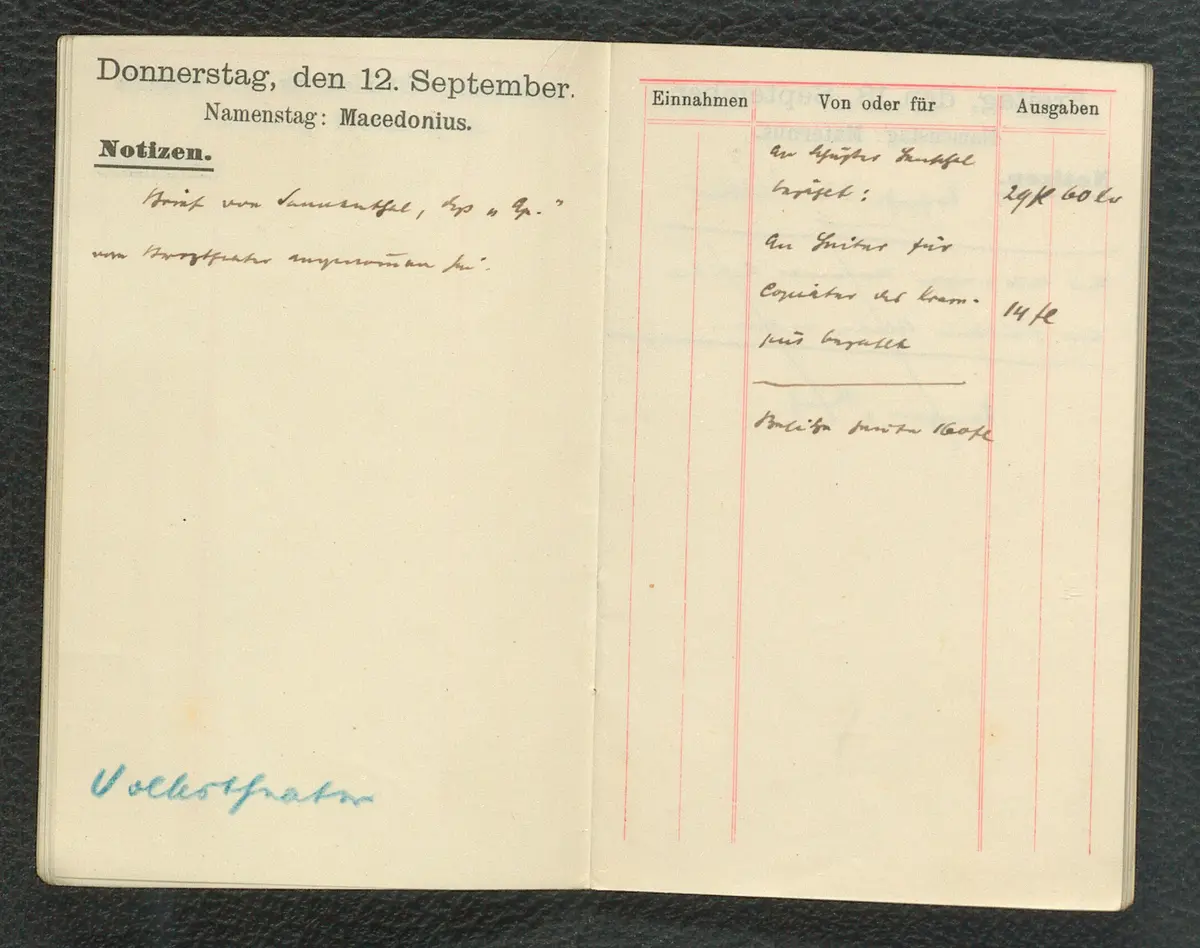 Donnerstag, den 12. September.
Namenstag: Macedonius.
Notizen.
Brief von Sonnenthal, dß „Ap.“
vom Burgtheater angenommen sei.
Volkstheater
Einnahmen Von oder für Ausgaben
An Schuster
bezahlt: 29 fl 60 kr
An für
Copiatur des Kram-
pus bezahlt 14 fl
Besitze heute 160 fl